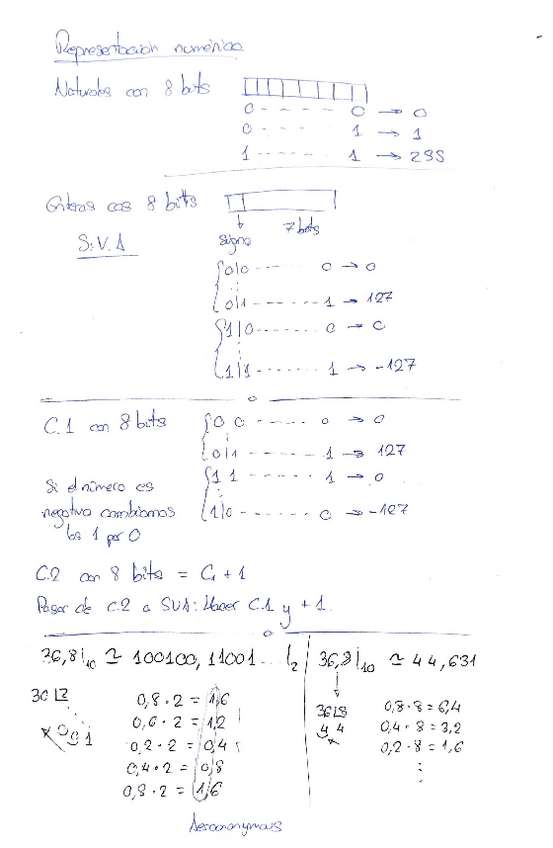 Representación numérica
Naturales con 8 bits
0 - - - - 0 → 0
0 - - - - 1 → 1
1 - - - - 1 → 255
Enteros con 8 bits
signo 7 bits
S.V.A
0|0 - - - - 0 → 0
0|1 - - - - 1 → 127
1|0 - - - - 0 → 0
1|1 - - - - 1 → -127
C.1 con 8 bits
0 0 - - - - 0 → 0
0|1 - - - - 1 → 127
1 1 - - - - 1 → 0
1|0 - - - - 0 → -127
Si el número es
negativo cambiamos
los 1 por 0
C.2 con 8 bits = C1 + 1
Pasar de C.2 a SVA: Hacer C.1 y + 1.
36,8|10 ≃ 100100,11001...|2
36 |2
0,8 · 2 = 1,6
0,6 · 2 = 1,2
0,2 · 2 = 0,4
0,4 · 2 = 0,8
0,8 · 2 = 1,6
36,8|10 ≃ 44,631
36|8
4 4
0,8 · 8 = 6,4
0,4 · 8 = 3,2
0,2 · 8 = 1,6